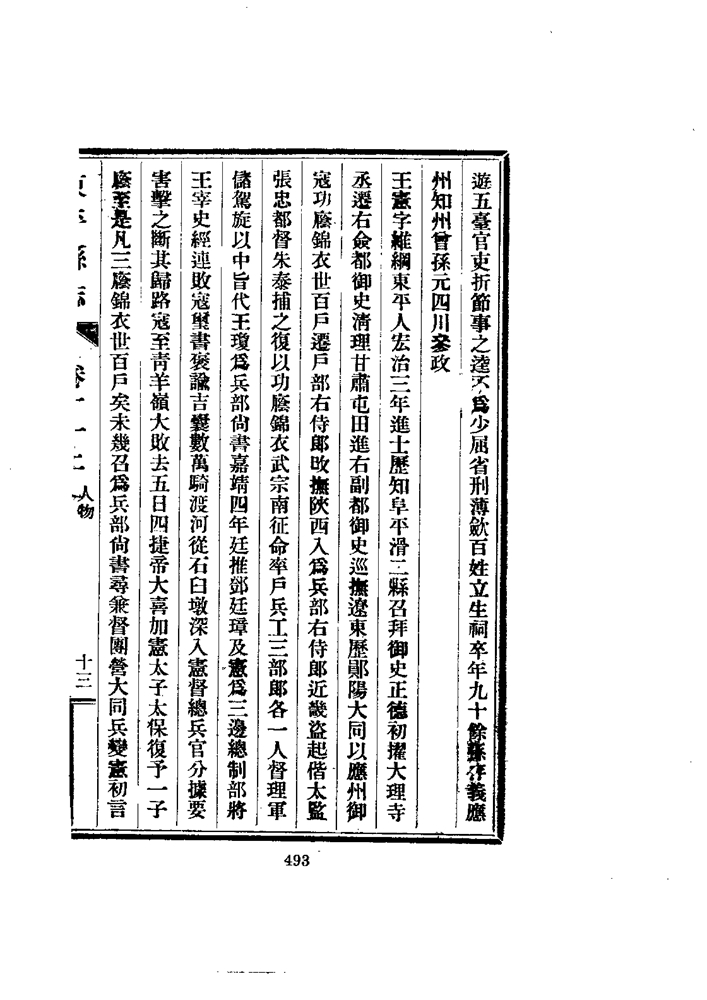 遊五臺官吏折節事之逵不爲少屈省刑薄歛百姓立生祠卒年九十餘孫存義應
州知州曾孫元四川叅政
王憲字維綱東平人宏治三年進士歷知阜平滑二縣召拜御史正德初擢大理寺
丞遷右僉都御史淸理甘肅屯田進右副都御史巡撫遼東歷鄖陽大同以應州御
寇功廕錦衣世百戶遷戶部右侍郎改撫陝西入爲兵部右侍郎近畿盜起偕太監
張忠都督朱泰捕之復以功廕錦衣武宗南征命率戶兵工三部郎各一人督理軍
儲駕旋以中旨代王瓊爲兵部尙書嘉靖四年廷推鄧廷璋及憲爲三邊總制部將
王宰史經連敗寇璽書褒諭吉囊數萬騎渡河從石臼墩深入憲督總兵官分據要
害擊之斷其歸路寇至靑羊嶺大敗去五日四捷帝大喜加憲太子太保復予一子
廕至是凡三廕錦衣世百戶矣未幾召爲兵部尙書尋兼督團營大同兵變憲初言
東平縣志 卷十一上 人物 十三
493